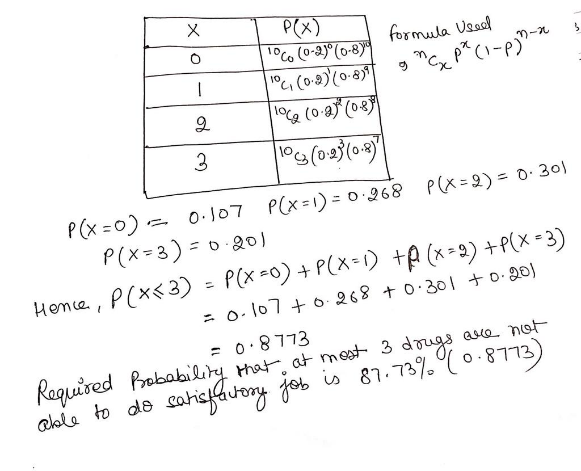 X P(X)
0 ¹⁰C₀ (0.2)⁰ (0.8)¹⁰
1 ¹⁰C₁ (0.2)¹ (0.8)⁹
2 ¹⁰C₂ (0.2)² (0.8)⁸
3 ¹⁰C₃ (0.2)³ (0.8)⁷
formula Used
, ⁿCₓ pˣ (1-P)ⁿ⁻ˣ
P(X=0) = 0.107 P(X=1) = 0.268 P(X=2) = 0.301
P(X=3) = 0.201
Hence, P(X≤3) = P(X=0) + P(X=1) + P(X=2) + P(X=3)
= 0.107 + 0.268 + 0.301 + 0.201
= 0.8773
Required Probability that at most 3 drugs are not
able to do satisfactory job is 87.73% (0.8773)